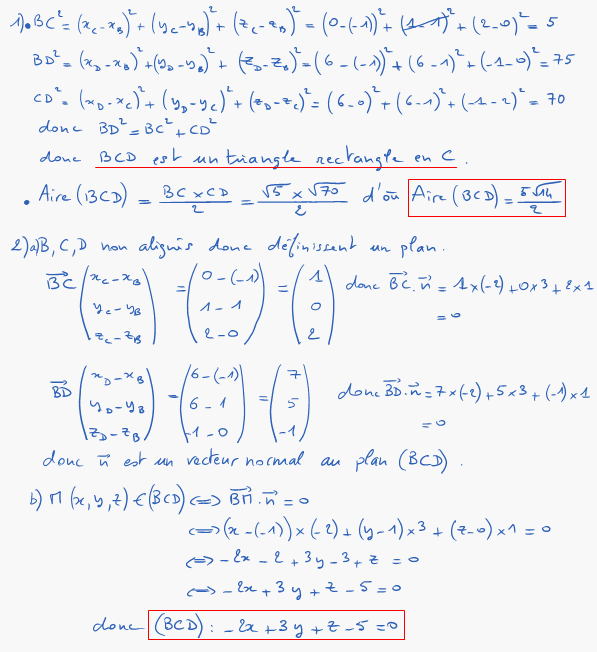 1). BC² = (x_C - x_B)² + (y_C - y_B)² + (z_C - z_B)² = (0 - (-1))² + (1 - 1)² + (2 - 0)² = 5
BD² = (x_D - x_B)² + (y_D - y_B)² + (z_D - z_B)² = (6 - (-1))² + (6 - 1)² + (-1 - 0)² = 75
CD² = (x_D - x_C)² + (y_D - y_C)² + (z_D - z_C)² = (6 - 0)² + (6 - 1)² + (-1 - 2)² = 70
donc BD² = BC² + CD²
donc BCD est un triangle rectangle en C.
• Aire (BCD) = (BC × CD)/2 = (√5 × √70)/2 d'où Aire (BCD) = 5√14/2
2) a) B, C, D non alignés donc définissent un plan.
BC→ (x_C - x_B ; y_C - y_B ; z_C - z_B) = (0 - (-1) ; 1 - 1 ; 2 - 0) = (1 ; 0 ; 2) donc BC→ . n→ = 1 × (-2) + 0 × 3 + 2 × 1
= 0
BD→ (x_D - x_B ; y_D - y_B ; z_D - z_B) = (6 - (-1) ; 6 - 1 ; -1 - 0) = (7 ; 5 ; -1) donc BD→ . n→ = 7 × (-2) + 5 × 3 + (-1) × 1
= 0
donc n→ est un vecteur normal au plan (BCD).
b) M (x, y, z) ∈ (BCD) ⟺ BM→ . n→ = 0
⟺ (x - (-1)) × (-2) + (y - 1) × 3 + (z - 0) × 1 = 0
⟺ -2x - 2 + 3y - 3 + z = 0
⟺ -2x + 3y + z - 5 = 0
donc (BCD) : -2x + 3y + z - 5 = 0